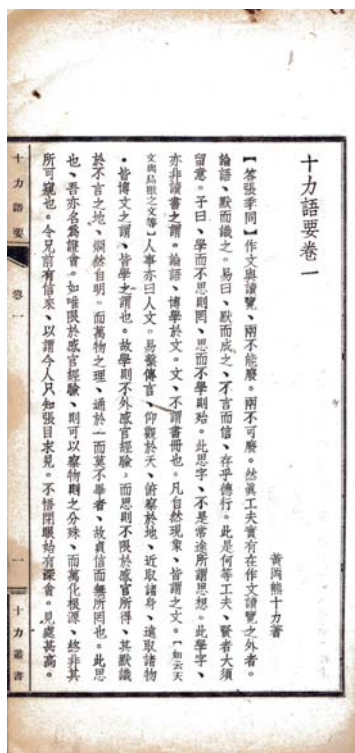 十力語要卷一
黃岡熊十力著
【答張季同】作文與讀覽、兩不能廢。兩不可廢。然眞工夫實有在作文讀覽之外者。
論語、默而識之。易曰、默而成之、不言而信、存乎德行。此是何等工夫、賢者大須
留意。子曰、學而不思則罔、思而不學則殆。此思字、不是常途所謂思想。此學字、
亦非讀書之謂。論語、博學於文。文、不謂書冊也。凡自然現象、皆謂之文。【如云天
文與鳥獸之文等】人事亦曰人文。易繫傳言、仰觀於天、俯察於地、近取諸身、遠取諸物
。皆博文之謂、皆學之謂也。故學則不外感官經驗。而思則不限於感官所得、其默識
於不言之地、烱然自明。而萬物之理、通於一而莫不畢者、故貞信而無所罔也。此思
也、吾亦名爲證會。如唯限於感官經驗、則可以察物則之分殊、而萬化根源、終非其
所可窺也。令兄前有信來、以謂今人只知張目求見。不悟閉眼始有深會。見處甚高。
十力語要
卷一
一
十力叢書